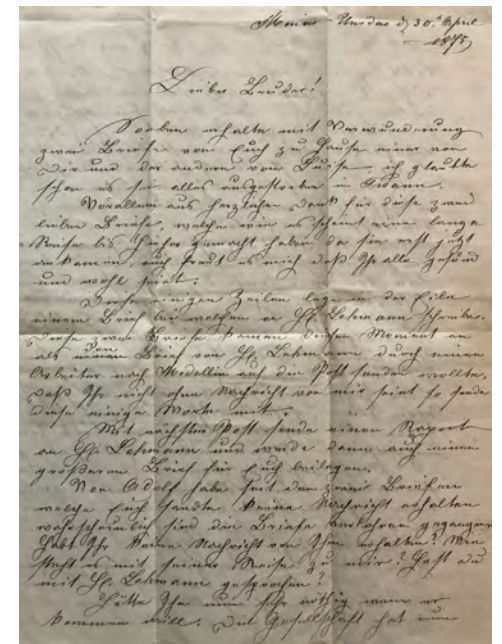 Minas Unidas d, 30. April
1875
Lieber Bruder!
Soeben erhalte mit Verwunderung
zwei Briefe von Euch zu Hause einer von
Dir und der andere von Luise, ich glaubte
schon es sei alles ausgestorben in Twann.
Vorallem aus herzlichen Dank für diese zwei
lieben Briefe, welche wie es scheint eine lange
Reise bis hieher gemacht haben da sie erst jetzt
ankamen, auch freut es mich daß Ihr alle gesund
und wohl seint.
Diese einigen Zeilen lege in der Eile
einem Brief bei welchen an H. Lehmann schreibe.
Diese zwei Briefe kamen diesen Moment an
als einen Brief von H. Lehmann durch einen
Arbeiter nach Medellin auf die Post senden wollte,
daß Ihr nicht ohne Nachricht von mir seint so sende
diese einige Worte mit.
Mit nächster Post sende einen Raport
an H. Lehmann und werde dann auch einen
größeren Brief für Euch beilegen.
Von Adolf habe seit den zwei Briefen
welche Euch sandte keine Nachricht erhalten
wahrscheinlich sind die Briefe verlohren gegangen
Habt Ihr keine Nachricht von Ihm erhalten? Wie
steht es mit seiner Reise zu mir? Hast du
mit H. Lehmann gesprochen?
Hätte Ihn nun sehr nöthig wenn er
kommen will. Die Gesellschaft hat nun